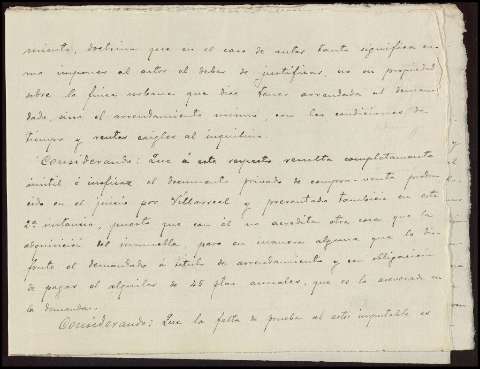 miento, doctrina que en el caso de autos tanto significa co-
mo imponer al actor el deber de justificar, no su propiedad
sobre la finca urbana que dice tener arrendada al deman-
dado, sino el arrendamiento mismo, con las condiciones de
tiempo y rentas exigles al inquilino.
Considerando: Que á este respecto resulta completamente
inútil é ineficaz el documento privado de compra-venta produ-
cido en el juicio por Villarreal y presentado tambien en esta
2ª instancia, puesto que con él no acredita otra cosa que la
adquisición del inmueble, pero en manera alguna que lo dis-
frute el demandado á título de arrendamiento y con obligacion
de pagar el alquiler de 45 ptas anuales, que es lo aseverado en
la demanda.
Considerando: Que la falta de prueba al actor imputable es